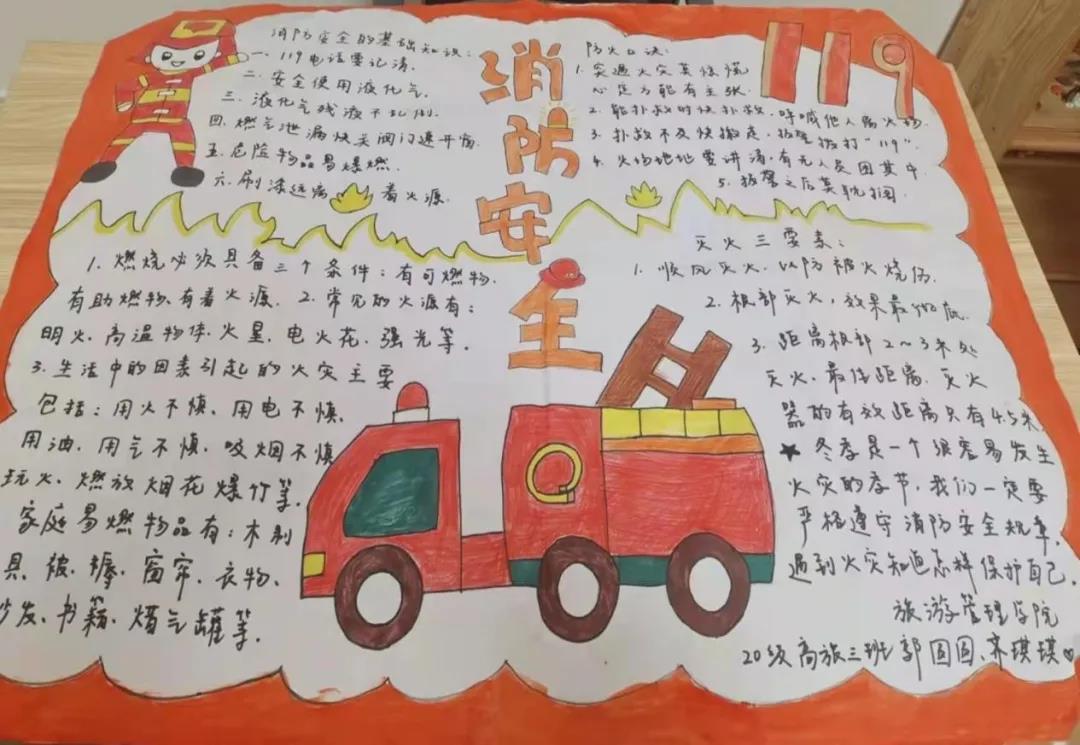 消防安全
119
消防安全的基础知识:
一. 119电话要记清.
二. 安全使用液化气.
三. 液化气残液不乱倒.
四. 燃气泄漏快关阀门速开窗.
五. 危险物品易爆燃.
六. 刷漆远离 着火源.
防火口诀:
1. 突遇火灾莫惊慌
心定方能有主张
2. 能扑救时快扑救, 呼喊他人离火场.
3. 扑救不及快撤走, 报警拨打"119".
4. 火场地址要讲清, 有无人员困其中
5. 报警之后莫耽搁.
1. 燃烧必须具备三个条件: 有可燃物.
有助燃物、有着火源. 2. 常见的火源有:
明火、高温物体、火星、电火花、强光等.
3. 生活中的因素引起的火灾主要
包括: 用火不慎、用电不慎、
用油、用气不慎、吸烟不慎
玩火、燃放烟花爆竹等.
家庭易燃物品有: 木制
具、被、褥、窗帘、衣物、
沙发、书籍、煤气罐等.
灭火三要素:
1. 顺风灭火, 以防被火烧伤.
2. 根部灭火, 效果最彻底.
3. 距离根部2~3米处
灭火、最佳距离. 灭火
器的有效距离只有4.5米.
★ 冬季是一个很容易发生
火灾的季节, 我们一定要
严格遵守消防安全规章,
遇到火灾知道怎样保护自己.
旅游管理学院
20级高旅三班 郭圆圆、齐琪琪♡